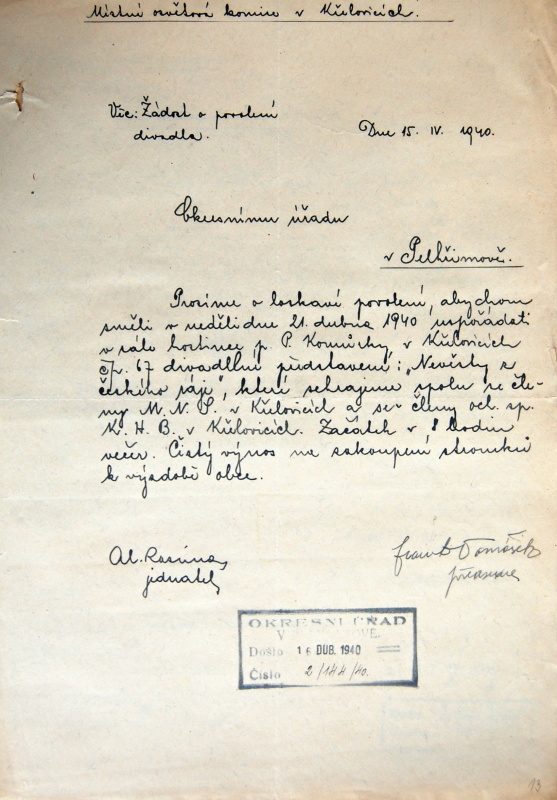 Místní osvětová komise v Křelovicích.
Věc: Žádost o povolení
divadla.
Dne 15. IV. 1940.
Okresnímu úřadu
v Pelhřimově.
Prosíme o laskavé povolení, abychom
směli v neděli dne 21. dubna 1940 uspořádati
v sále hostince p. P. v Křelovicích
čp. 67 divadelní představení: „Nevěsty z
českého ráje", které sehrajeme spolu se čle-
ny M. N. S. v Křelovicích a se členy och. sp.
K. H. B. v Křelovicích. Začátek v 8 hodin
večer. Čistý výnos na zakoupení stromků
k výsadbě obce.
Al.
jednatel,
Frant. Tomášek
předseda
OKRESNÍ ÚŘAD
V
Došlo 16 DUB. 1940
Číslo 2/144/40.
13